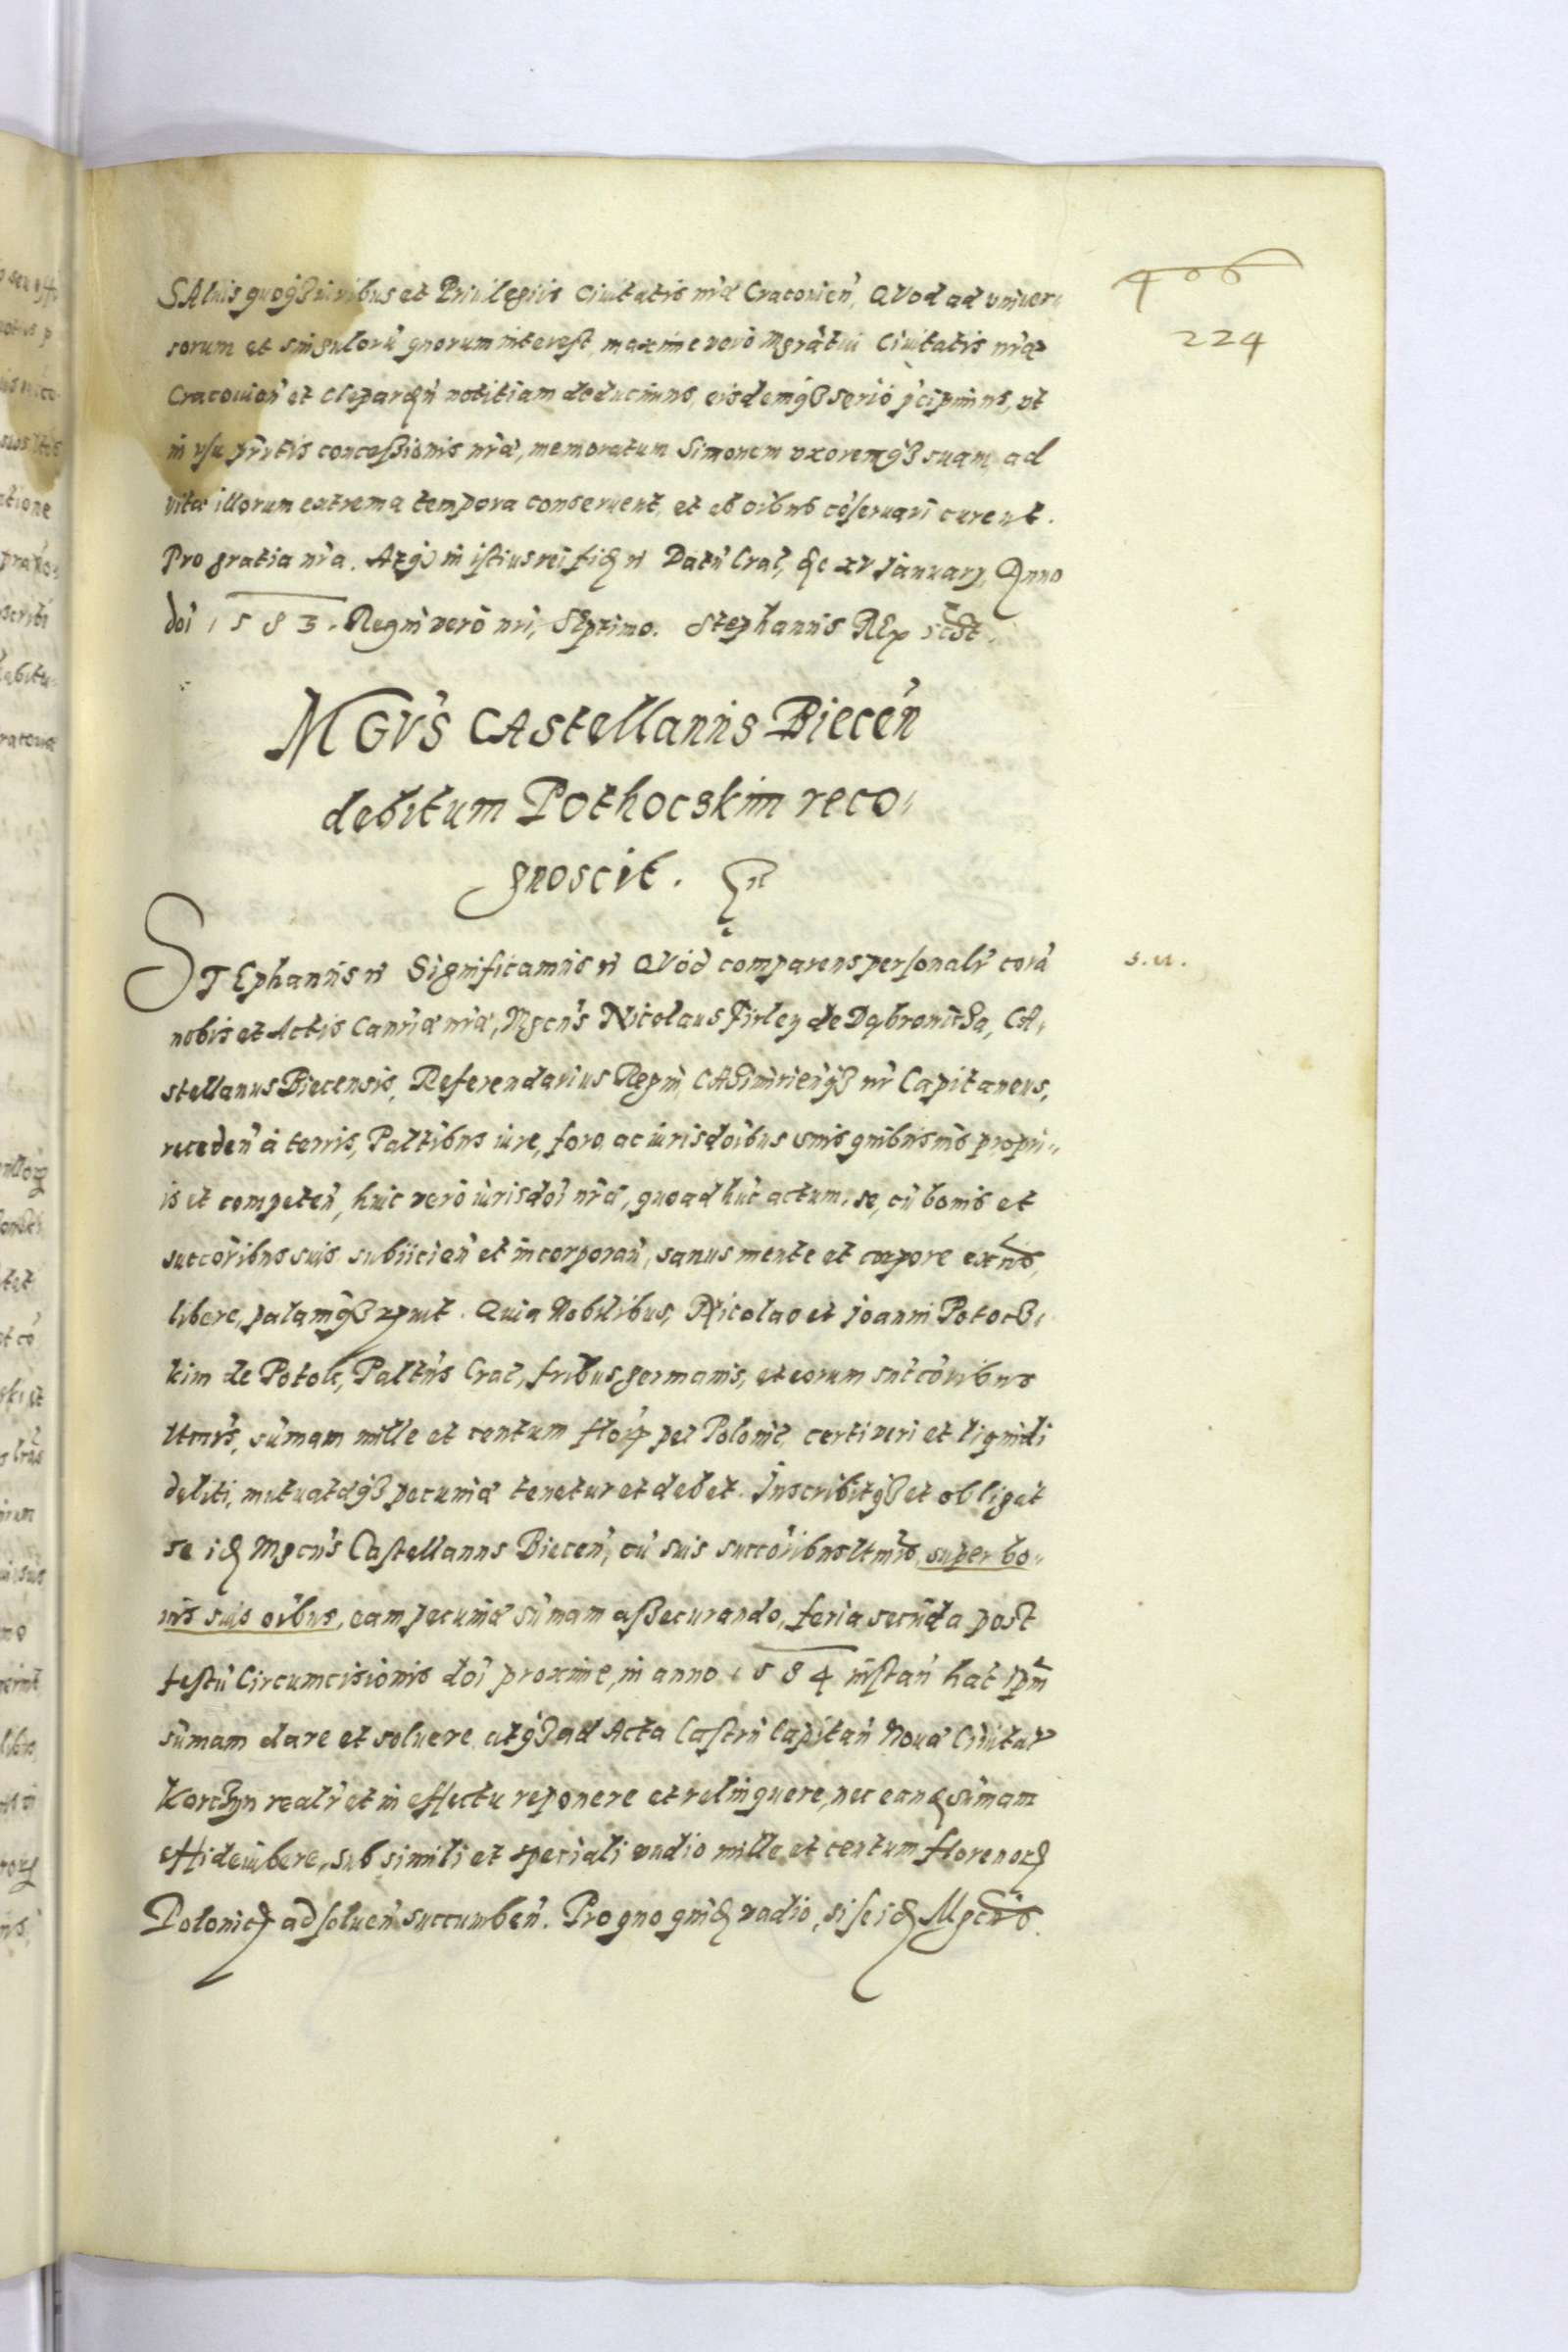 406
224
SAluis quoq3 iuribus et Priuilegiis Ciuitatis nrae Cracovien, QVod ad vniuer-
sorum et singuloru quorum interest, maxime vero Mgratui Ciuitatis nrae
Cracouien et Clepardn notitiam deducimus, eisdemq3 serio pcipimus, vt
in vsu pntis concessionis nrae, memoratum Simonem vxoremq3 suam ad
vitae illorum extrema tempora conseruent, et ab oibus coseruari curent.
Pro gratia nra. Atq3 in istius rei fid n Datu Crac, die xv January, Anno
doi 1583. Regni vero nri, Septimo. Stephanus REx sdt
MGVS CAstellanus Biecen
debitum Pothocskim reco-
gnoscit.
STEphanus n Significamus n QVod comparens personalr cora
nobis et Actis Canriae nrae, Mgcus Nicolaus Firley de Dąbrouicza, CA-
stellanus Biecensis, Referendarius Regni, CAsimirienq3 nr Capitaneus,
receden a terris, Paltibus iure, foro ac iurisdoibus suis quibusuis propri-
is et competen, huic vero iurisdoi nrae, quoad huc actum, se, cu bonis et
succoribus suis subiicien et incorporan, sanus mente et corpore exns,
libere, palamq3 rgnuit. Quia Nobilibus, Nicolao et Joanni Potocs-
kim de Potok, Paltus Crac, fribus germanis, et eorum succoribus
ltmis, sumam mille et centum flor pec Polonic, certi veri et liquidi
debiti, mutuataeq3 pecuniae tenetur et debet. Inscribitq3 et obligat
se id Mgcus Castellanus Biecen, cu suis succoribus ltmis, super bo-
nis suis oibus, eam pecuniae sumam assecurando, feria secuda post
festu Circumcisionis doi proxime, in anno 1584 instan hac ipm
sumam dare et soluere, atq3 ad Acta Castrn Capitan Noua Ciuitat
Korczyn realr et in effectu reponere et relinquere, nec eand sumam
effideiubere, sub simili et speciali vadio mille et centum florenor
Polonic ad soluen succumben. Pro quo quid vadio, si se id Mgcus
s. u.